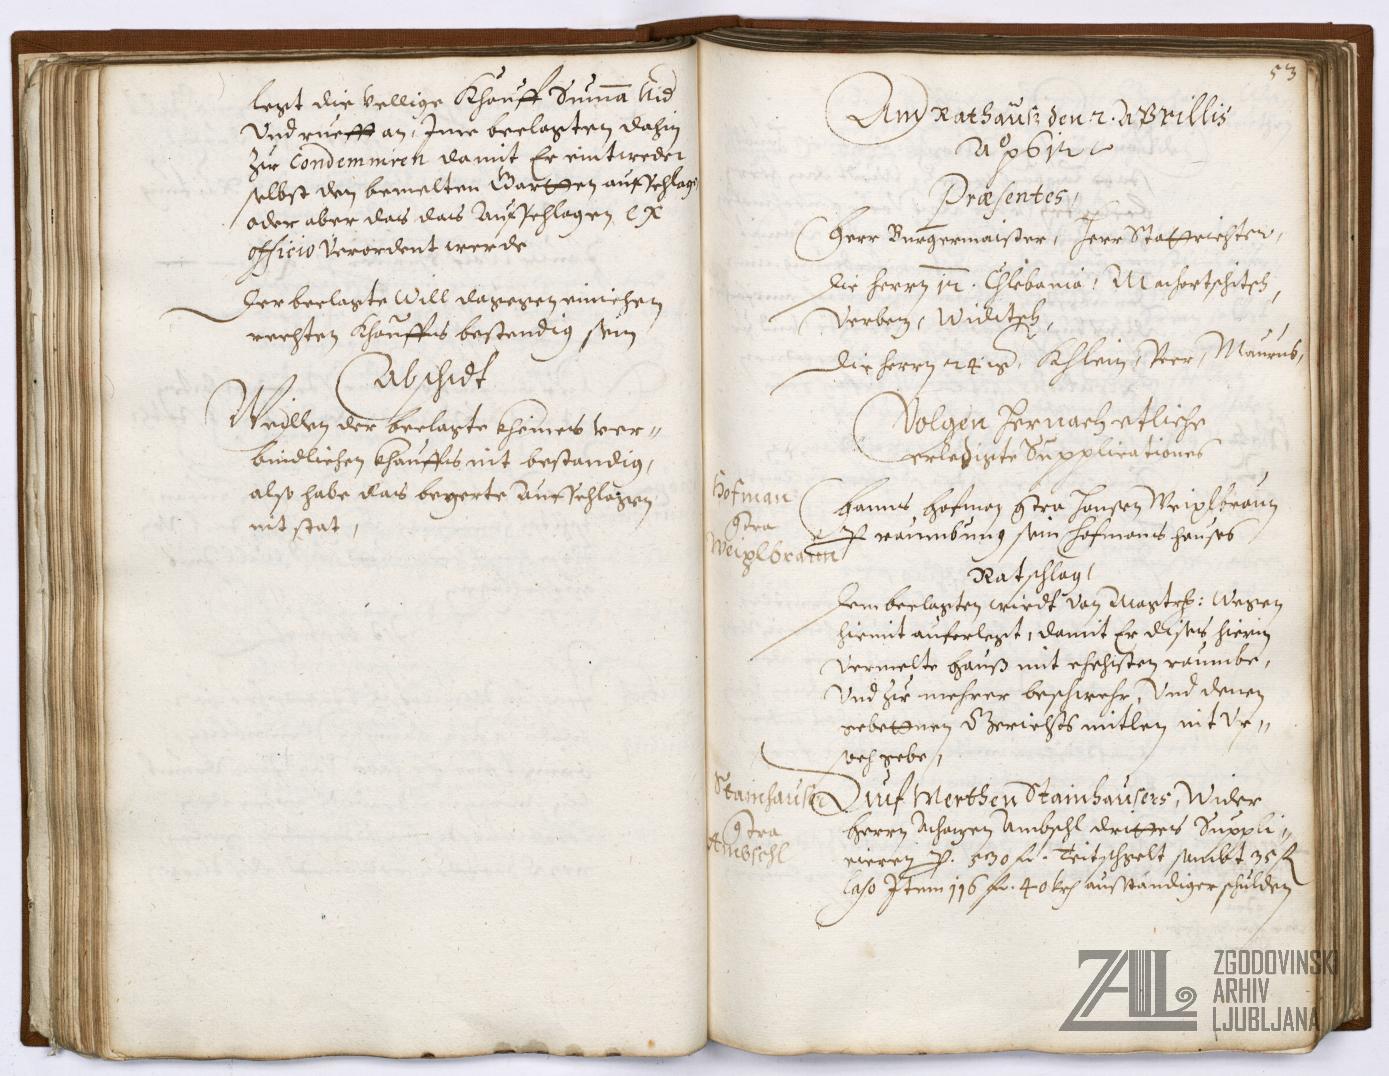 legt die vellige Khauff Suma Nid
Und ruefft an, Ime beclagten dahin
zu Condemniren damit Er eintweder
selbst den bemelten Gartten aufschlage
oder aber das das Aufschlagen ex
officio verordent werde
Der beclagte will dagegen einichen
rechten Khauffs bestendig sein
Abschidt
Weillen der beclagte kheines ver-
bindlichen khauffs nit bestandig,
also habe das begerte Aufschlagen
nit stat,
53
Am Rathauß den 2. Aprillis
Aº 1612
Præsentes,
Herr Burgermaister, Herr Stattrichter,
die herrn 12. Chlebania,
Verbez, Widitsch,
die herrn 24ig. Khlein, Peer, Maurus,
Volgen hernach etliche
erledigte Supplicationes
Hofman
contra
Weixlbraun
Hanns Hofman contra Hansen Weixlbraun
p. raumbung sein Hofmans hauses
Ratschlag,
Dem beclagten wirdt von Magtrs: wegen
hiemit auferlegt, damit Er dises hierin
vermelte hauß mit ehisten raumbe,
Und zu mehrer beschwehr, Und denen
gebettnen Gerichts mitlen nit Ur-
sach gebe,
Stainhauser
contra
Ambschl
Auf Merthen Stainhausers, Wider
herrn Ambschl drittes Suppli-
cieren p. 530 fl. Teitschgelt sambt 35 fl
Item 116 fl. 40 kr ausständiger schulden
ZAL ZGODOVINSKI
ARHIV
LJUBLJANA